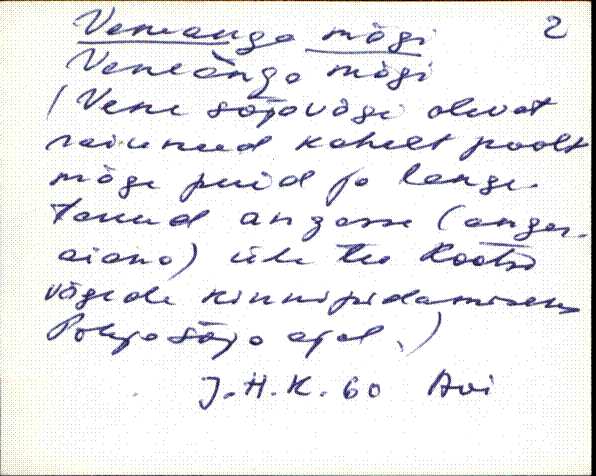 Veneauga mägi 2
Veneänga mägi
(Vene sõjavägi olevat
raiunud kahelt poolt
mäge puid ja lange-
tanud angasse (angas-
aiana) üle tee Rootsi
vägede kinnipidamiseks
Põhjasõja ajal.)
J.H.K. 60 Avi